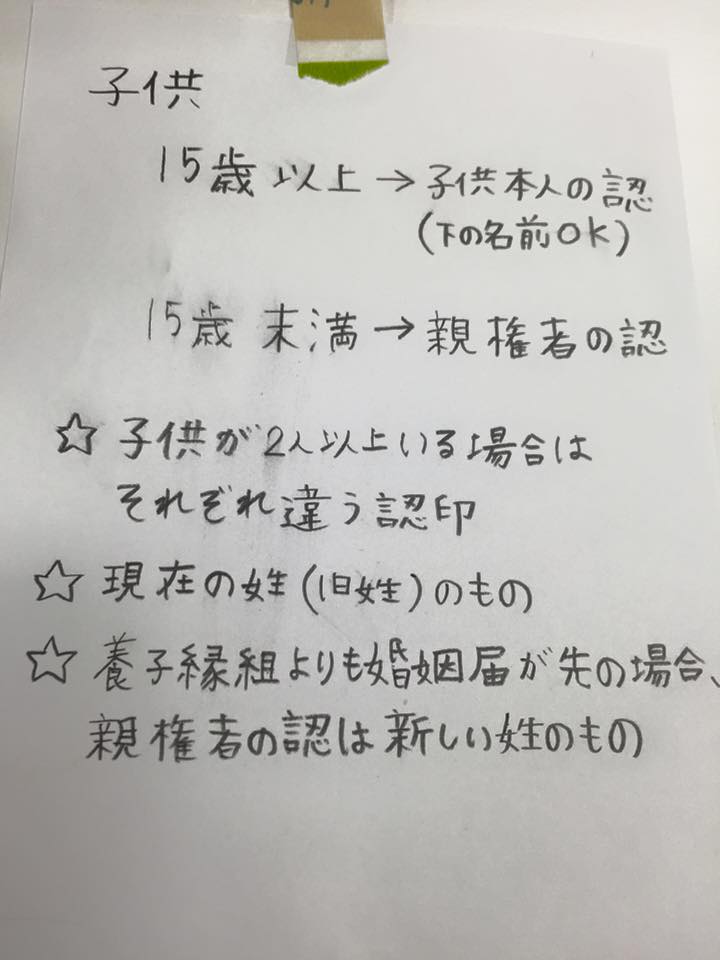 子供
15歳以上→子供本人の認
(下の名前OK)
15歳 末満→親権者の認
☆ 子供が2人以上いる場合は
それぞれ違う認印
☆ 現在の姓(旧姓)のもの
☆ 養子縁組よりも婚姻届が先の場合、
親権者の認は新しい姓のもの